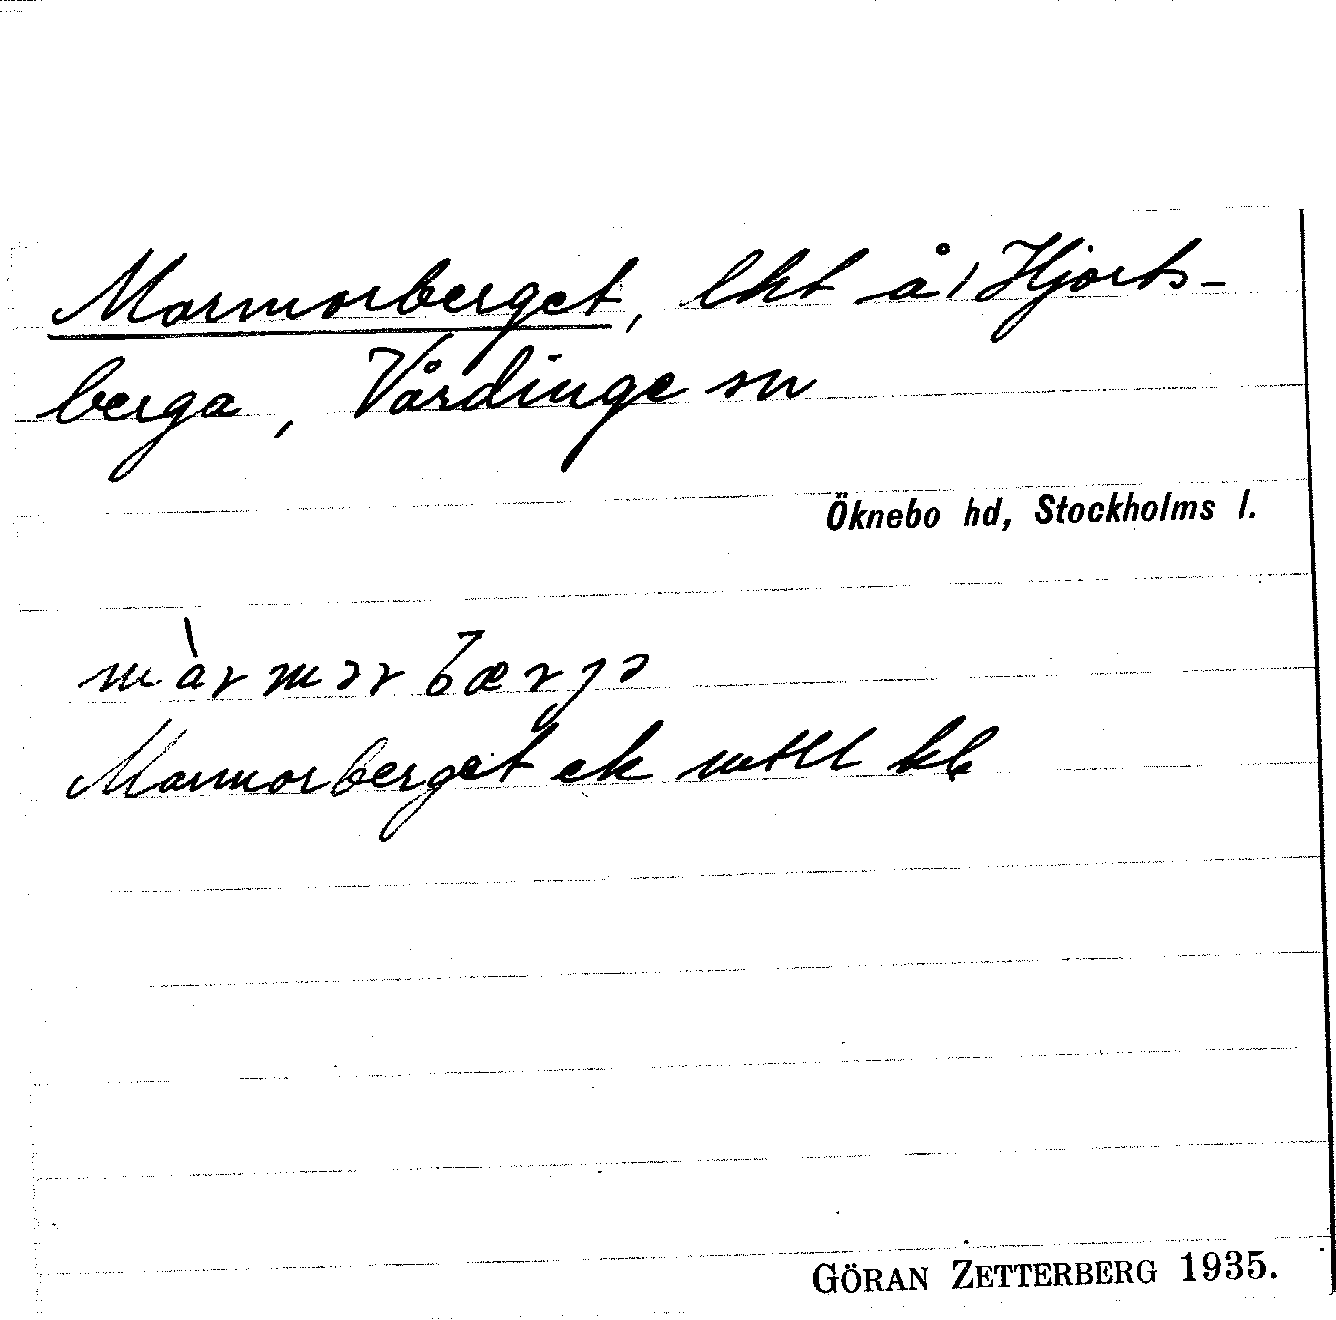 Marmorberget, lht å Hjorts-
berga, Vårdinge sn
Öknebo hd, Stockholms l.
màrmərbærjə
Marmorberget ek
GÖRAN ZETTERBERG 1935.